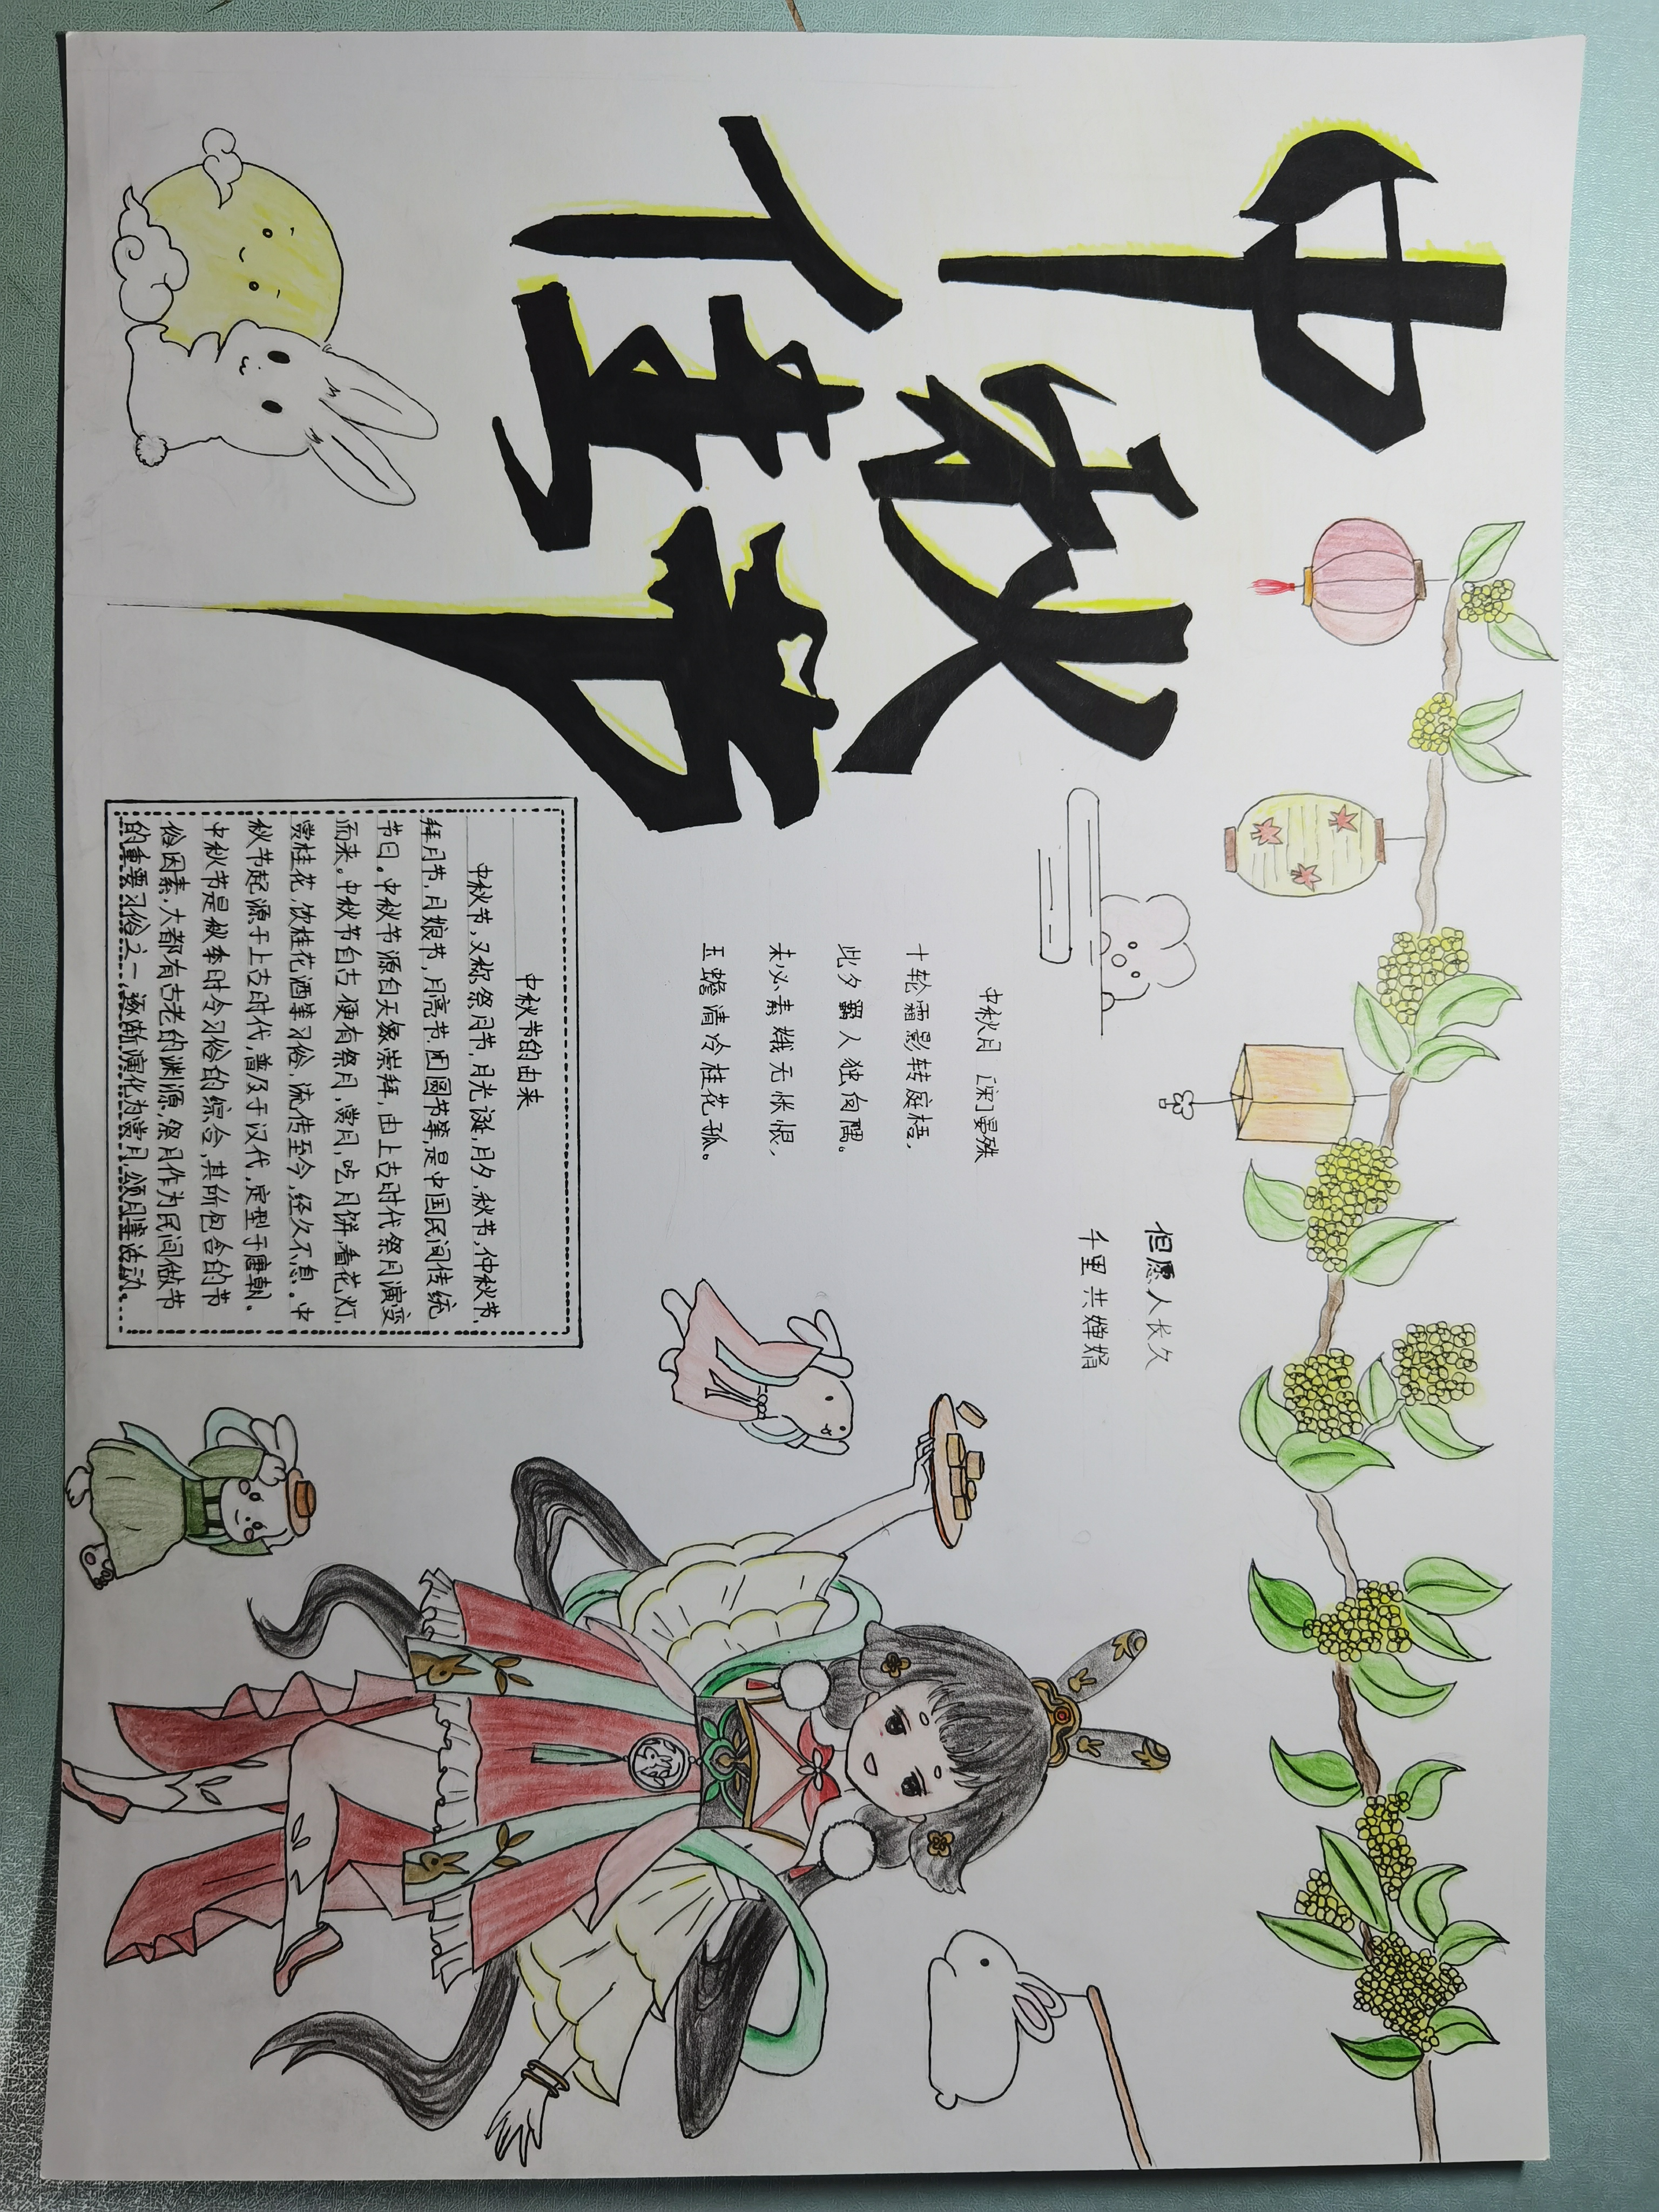 中秋
佳节
但愿人长久
千里共婵娟
中秋月 [宋]晏殊
十轮霜影转庭梧，
此夕羁人独向隅。
未必素娥无怅恨，
玉蟾清冷桂花孤。
中秋节的由来
中秋节，又称祭月节，月光诞，月夕，秋节，仲秋节，
拜月节，月娘节，月亮节，团圆节等，是中国民间传统
节日。中秋节源自天象崇拜，由上古时代祭月演变
而来。中秋节自古便有祭月，赏月，吃月饼，看花灯，
赏桂花，饮桂花酒等习俗，流传至今，经久不息。中
秋节起源于上古时代，普及于汉代，定型于唐朝。
中秋节是秋季时令习俗的综合，其所包含的节
俗因素，大都有古老的渊源，祭月作为民间做节
的重要习俗之一，逐渐演化为赏月，颂月等活动。